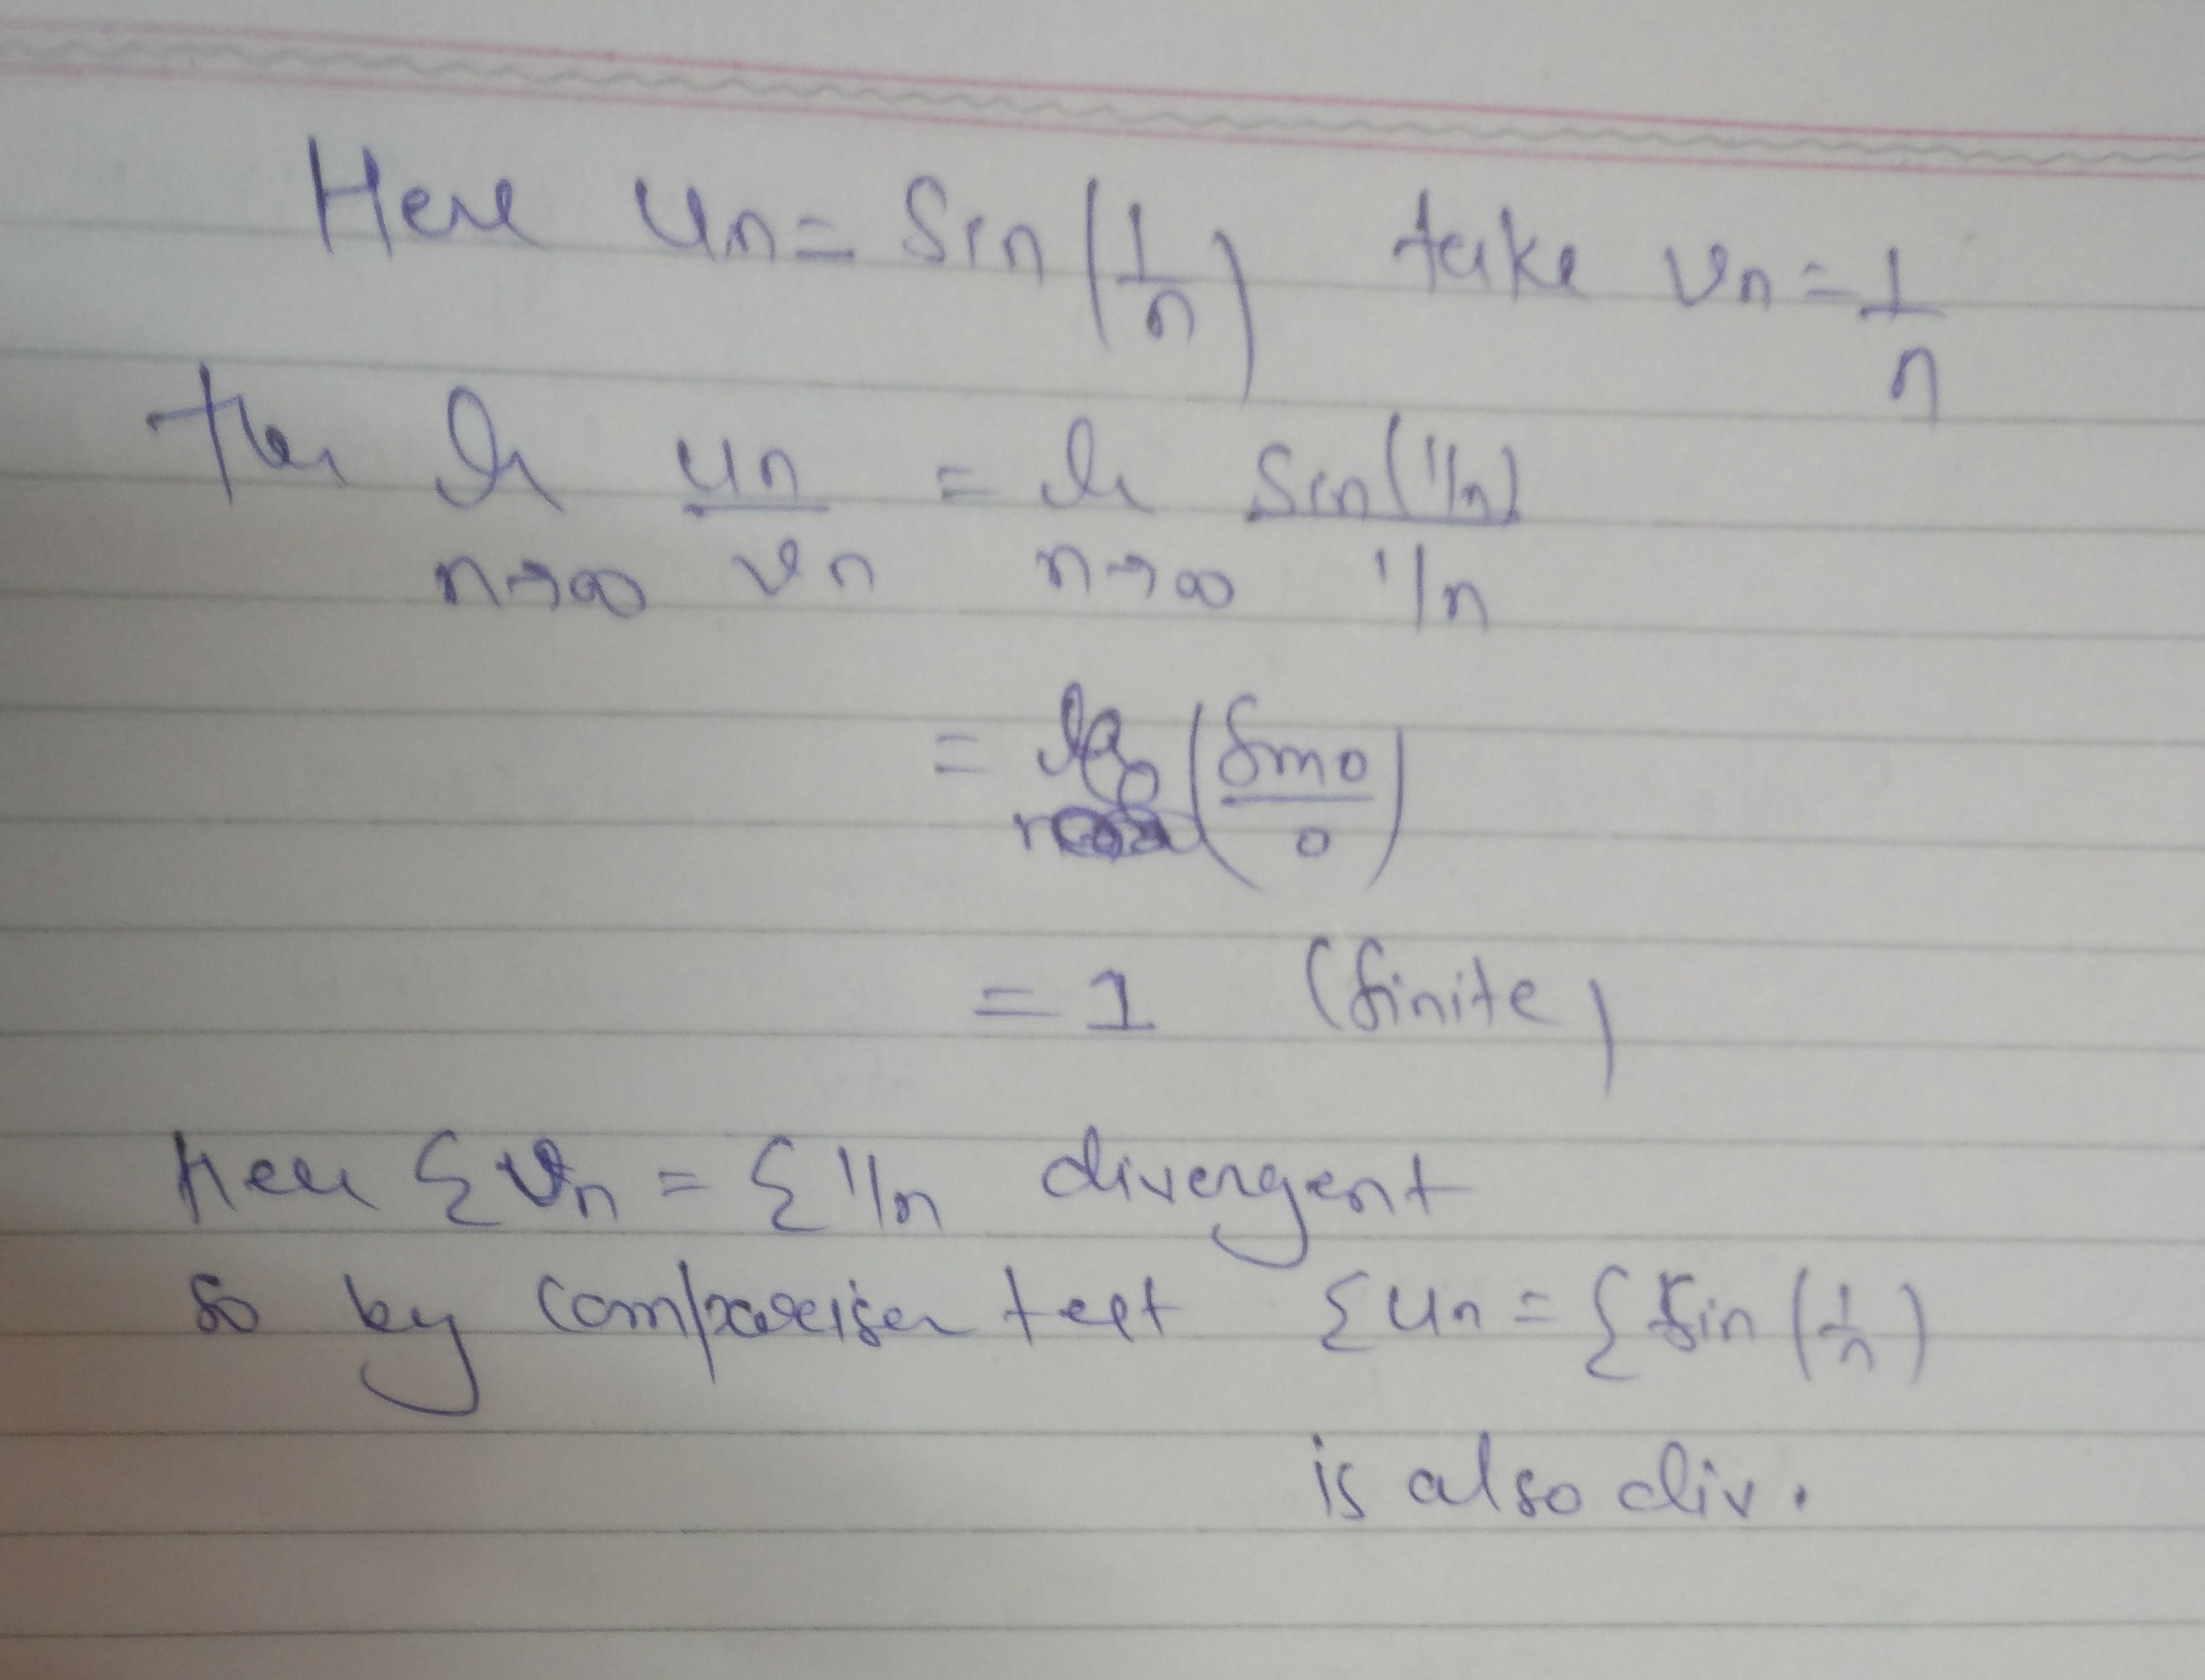 Here un = Sin (1/n) take vn = 1/n
then lt n→∞ un/vn = lt n→∞ Sin(1/n) / 1/n
= (Sin0/0)
= 1 (finite)
Here Σvn = Σ1/n divergent
so by comparison test Σun = Σ Sin (1/n)
is also div.